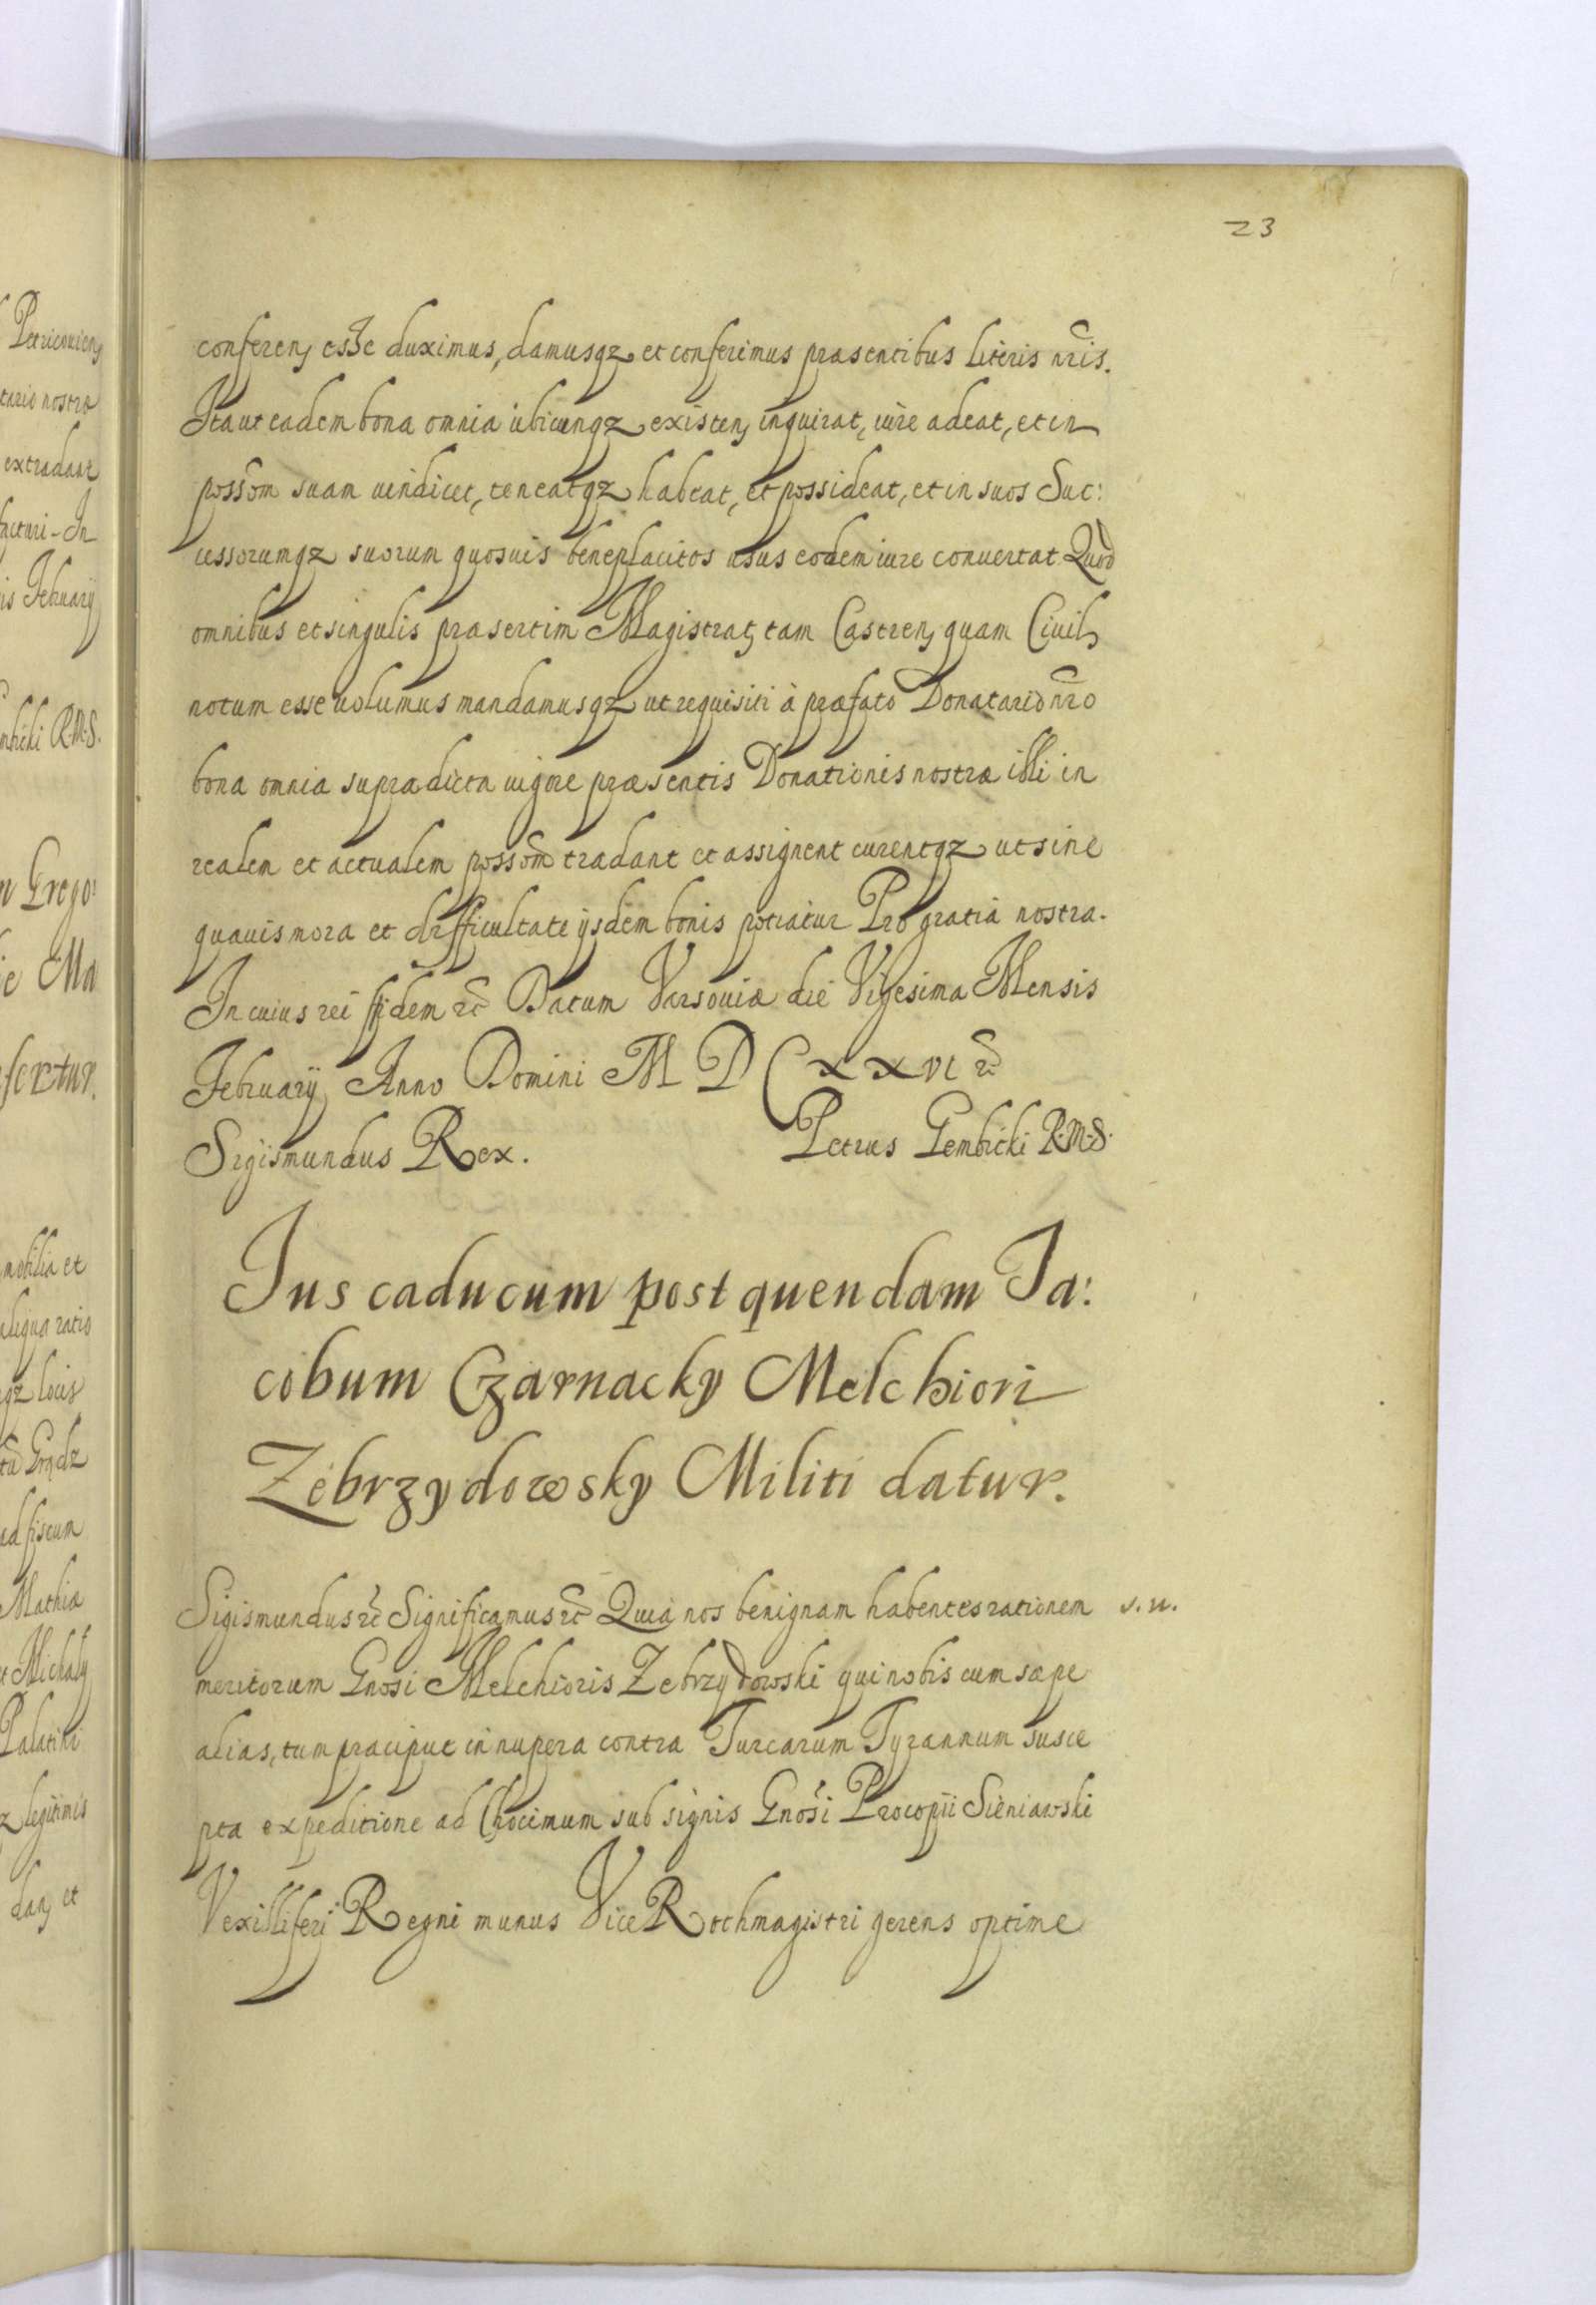 23
conferen, esse duximus, damusqz et conferimus præsentibus literis nr̃is.
Ita ut eadem bona omnia ubicunqz existen, inquirat, iure adeat, et in
possõm suam uendicet, teneatqz habeat, et possideat, et in suos Suc:
cessorumqz suorum quosuis beneplacitos usus eodem iure conuertat Quod
omnibus et singulis præsertim Magistrat, tam Castren, quam Ciuil,
notum esse uolumus mandamusqz ut requisiti à præfato Donatario nr̃o
bona omnia supradicta uigore præsentis Donationis nostræ illi in
realem et actualem possõm tradant et assignent curentqz ut sine
quauis mora et difficultate ijsdem bonis potiatur Pro gratia nostra.
In cuius rei fidem &c Datum Varsouiæ die Vigesima Mensis
February Anno Domini M D C X X VI &c
Sigismundus Rex. Petrus Gembicki R.M.S.
Ius caducum post quendam Ia:
cobum Czarnacky Melchiori
Zebrzydowsky Militi datur.
Sigismundus &c Significamus &c Quia nos benignam habentes rationem s. n.
meritorum Gnosi Melchioris Zebrzydowski qui nobis cum sæpe
alias, tum præcipue in nupera contra Turcarum Tyrannum susce
pta expeditione ad Chocimum sub signis Gnosi Procopii Sieniawski
Vexilliferi Regni munus Vice Rothmagistri gerens optime
Petricouien,
tario nostro
extradant
facturi - In
is February
mbicki R.M.S.
n Grego:
ie Ma
fertur.
mobilia et
aliqua ratio
qz locis
Grodz
ad fiscum
Mathia
et Michaly
Palatini
z legitimis
dan, et